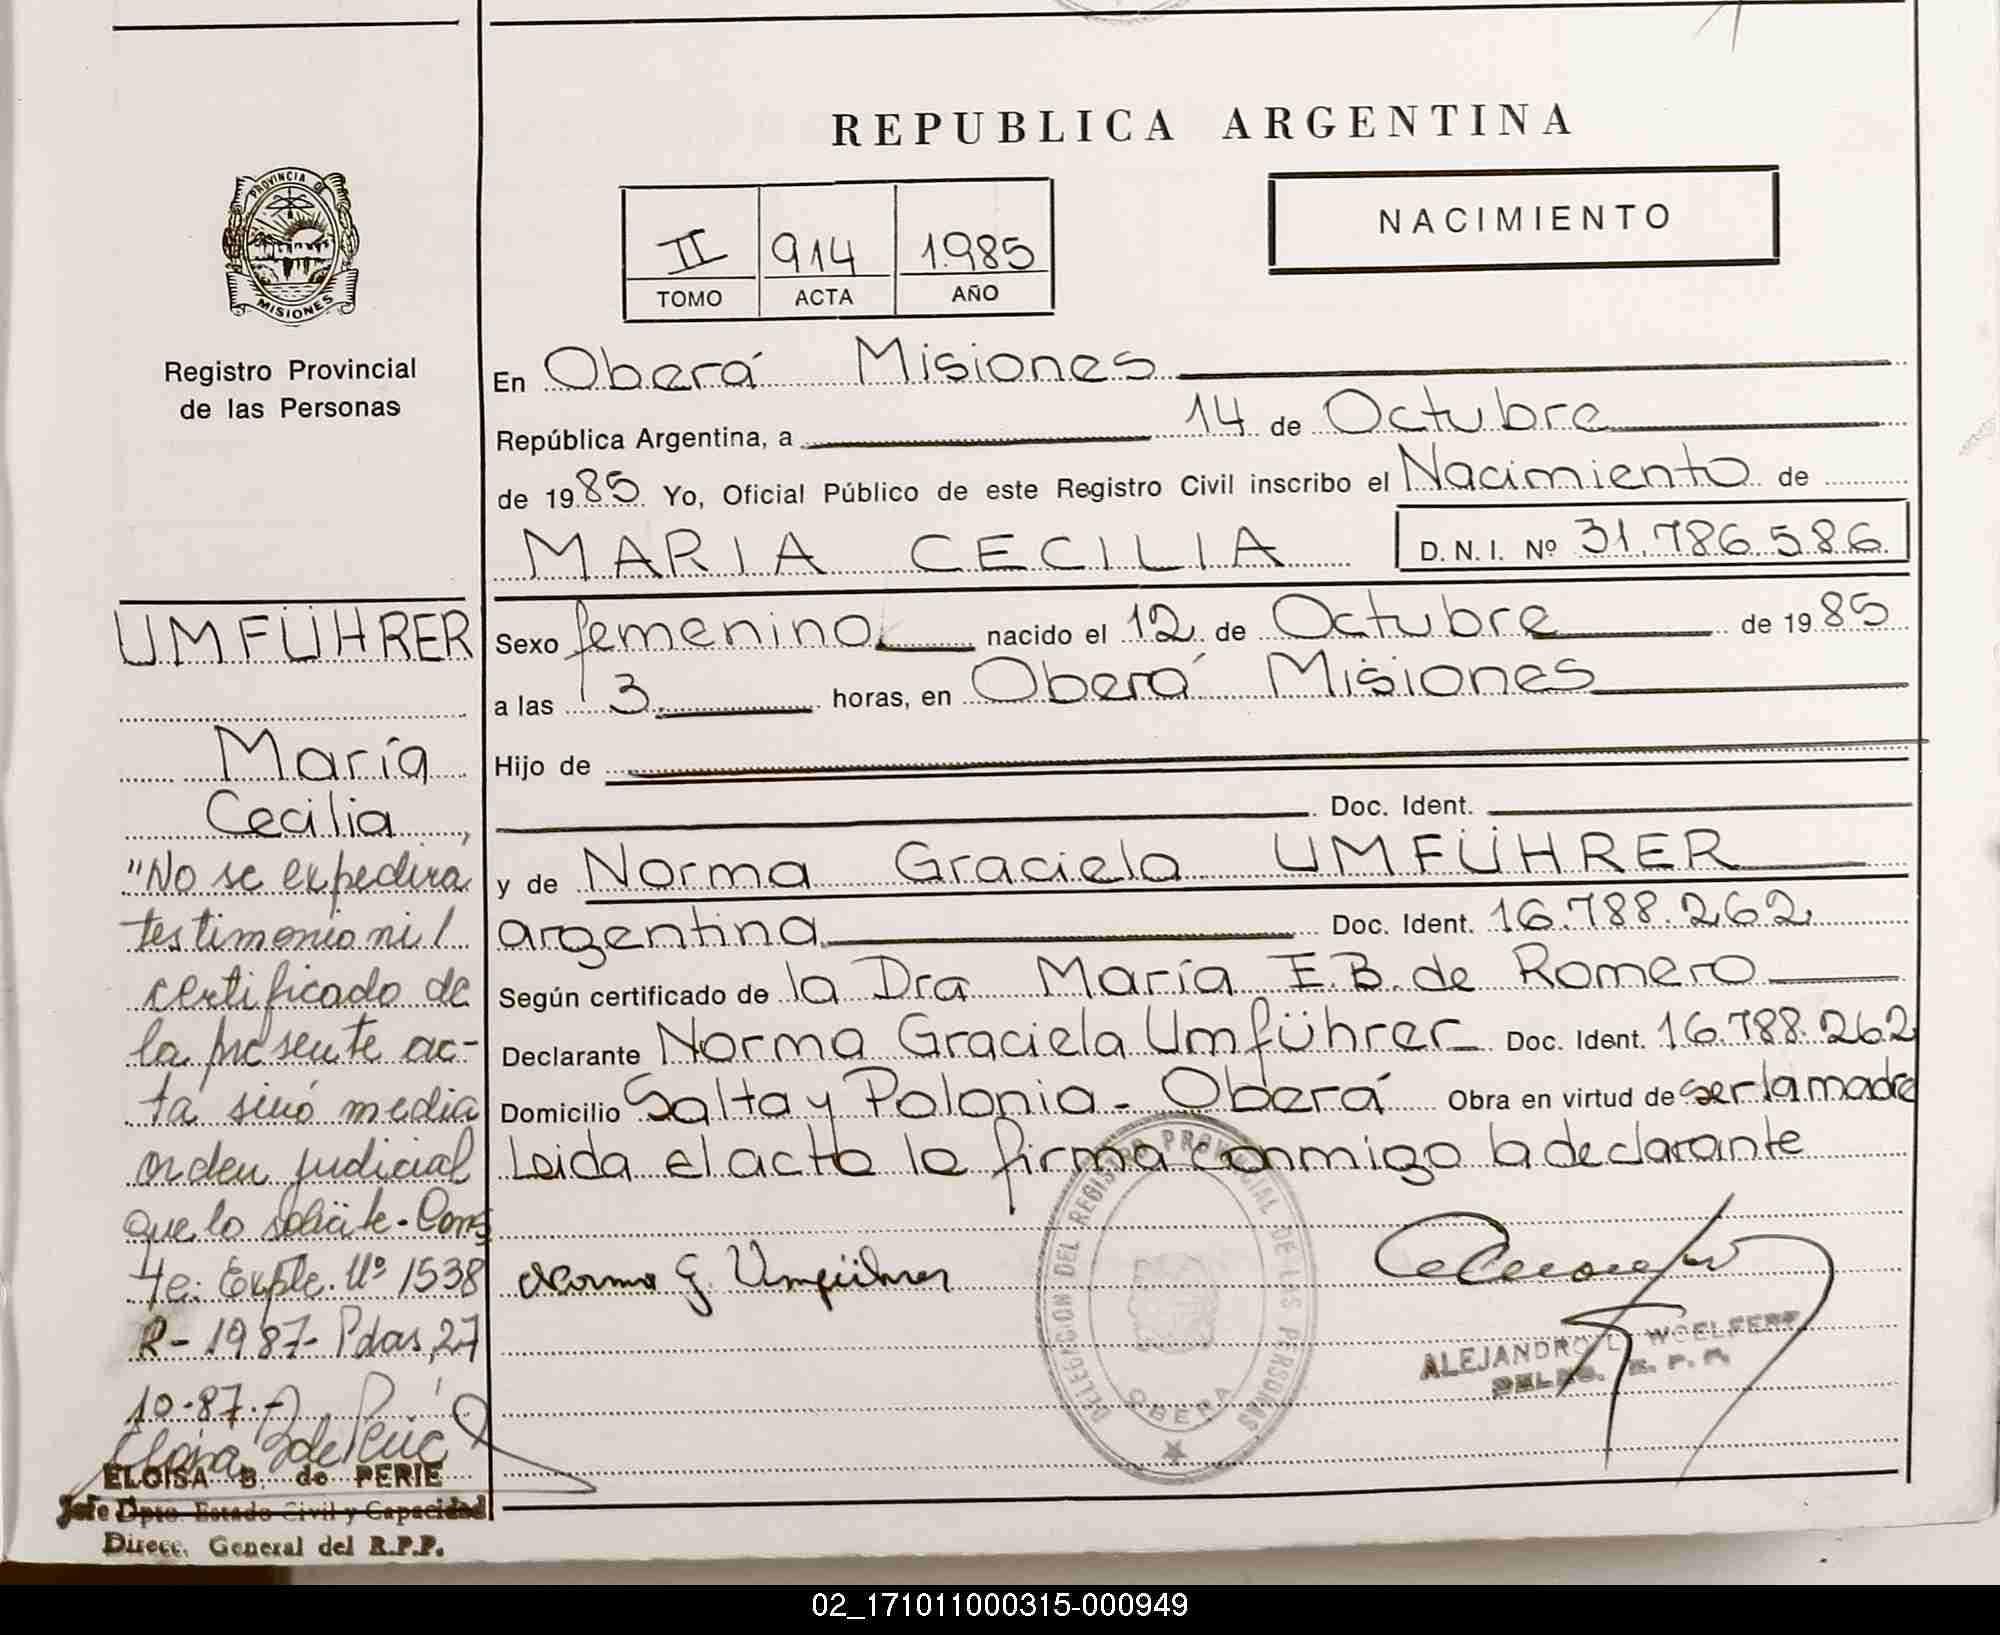 REPUBLICA ARGENTINA
NACIMIENTO
II 914 1985
TOMO ACTA AÑO
PROVINCIA DE
MISIONES
Registro Provincial
de las Personas
En Oberá Misiones
República Argentina, a 14 de Octubre
de 1985. Yo, Oficial Público de este Registro Civil inscribo el Nacimiento de
MARIA CECILIA D. N. I. Nº 31.786.586
Sexo femenino nacido el 12 de Octubre de 1985
a las 3 horas, en Oberá Misiones
Hijo de
Doc. Ident.
y de Norma Graciela UMFÜHRER
argentina Doc. Ident. 16.788.262
Según certificado de la Dra María E.B. de Romero
Declarante Norma Graciela Umführer Doc. Ident. 16.788.262
Domicilio Salta y Polonia - Oberá Obra en virtud de ser la madre
Leida el acta la firma conmigo la declarante
Norma G. Umführer
DELEGACION DEL REGISTRO PROVINCIAL DE LAS PERSONAS
OBERA
ALEJANDRO L. WOELFERT
DELEG. R. P. P.
UMFÜHRER
María
Cecilia
"No se expedira
testimonio ni
certificado de
la presente ac-
ta sinó media
orden judicial
que lo solicite - Cons
te: Expte. Nº 1538
R - 1987 - Pdas, 27
10-87.-
Eloisa B de Perié
ELOISA B. de PERIE
Jefe Dpto. Estado Civil y Capacidad
Direcc. General del R.P.P.
02_171011000315-000949